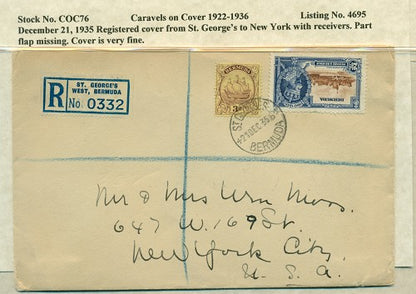 Stock No. COC76 Caravels on Cover 1922-1936 Listing No. 4695
December 21, 1935 Registered cover from St. George's to New York with receivers. Part
flap missing. Cover is very fine.
R
ST. GEORGE'S
WEST, BERMUDA
No. 0332
BERMUDA
BERMUDA
21 DEC 35
BERMUDA
Mr & Mrs Wm Moss.
647 W. 169 St.
New York City.
U. S. A.